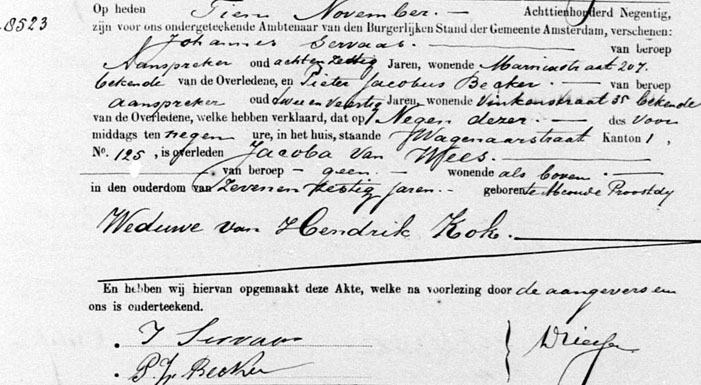 8523
Op heden Tien November. — Achttienhonderd Negentig,
zijn voor ons ondergeteekende Ambtenaar van den Burgerlijken Stand der Gemeente Amsterdam, verschenen:
Johannes Servaas. — van beroep
Aanspreker oud acht en zestig Jaren, wonende Marnixstraat 207.
bekende van de Overledene, en Pieter Jacobus Becker — van beroep
aanspreker oud twee en veertig Jaren, wonende Vinkenstraat 35 bekende
van de Overledene, welke hebben verklaard, dat op Negen dezer — des voor
middags ten negen ure, in het huis, staande Wagenaarstraat Kanton 1,
No. 125, is overleden Jacoba van Wees. —
— van beroep — geen — wonende als boven —
in den ouderdom van Zeven en zestig jaren — geboren te Abcoude Proostdy
Weduwe van Hendrik Kok. —
En hebben wij hiervan opgemaakt deze Akte, welke na voorlezing door de aangevers en
ons is onderteekend.
J Servaas
P.J. Becker